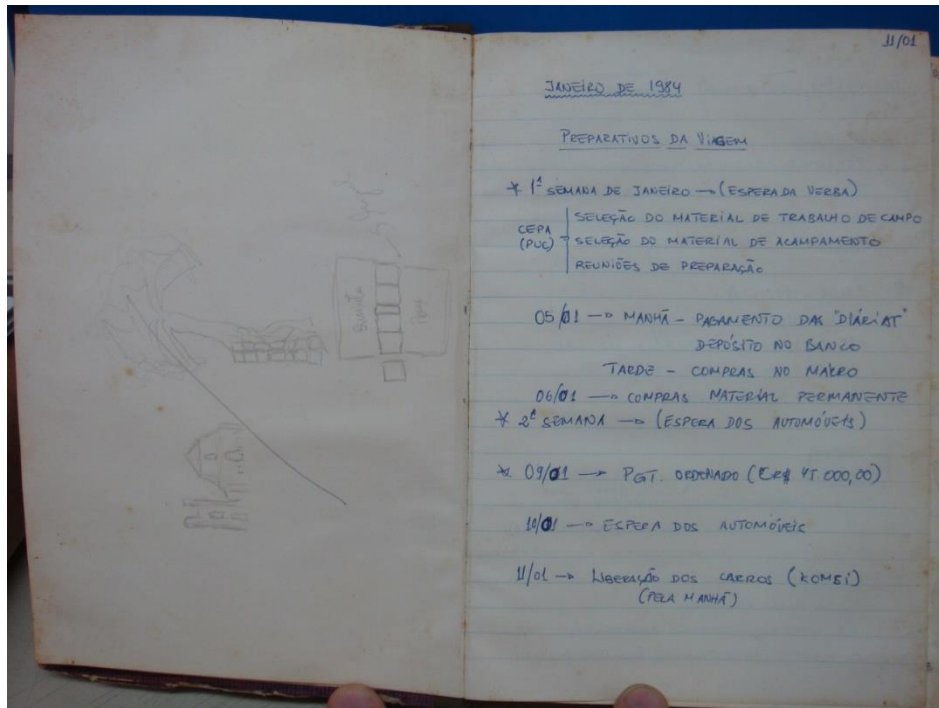 11/01
JANEIRO DE 1984
PREPARATIVOS DA VIAGEM
* 1ª SEMANA DE JANEIRO → (ESPERA DA VERBA)
SELEÇÃO DO MATERIAL DE TRABALHO DE CAMPO
CEPA (PUC) - SELEÇÃO DO MATERIAL DE ACAMPAMENTO
REUNIÕES DE PREPARAÇÃO
05/01 → MANHÃ - PAGAMENTO DAS "DIÁRIAS"
DEPÓSITO NO BANCO
TARDE - COMPRAS NO MAKRO
06/01 → COMPRAS MATERIAL PERMANENTE
* 2ª SEMANA → (ESPERA DOS AUTOMÓVEIS)
* 09/01 → PGT. ORDENADO (CR$ 45 000,00)
10/01 → ESPERA DOS AUTOMÓVEIS
11/01 → LIBERAÇÃO DOS CARROS (KOMBI)
(PELA MANHÃ)